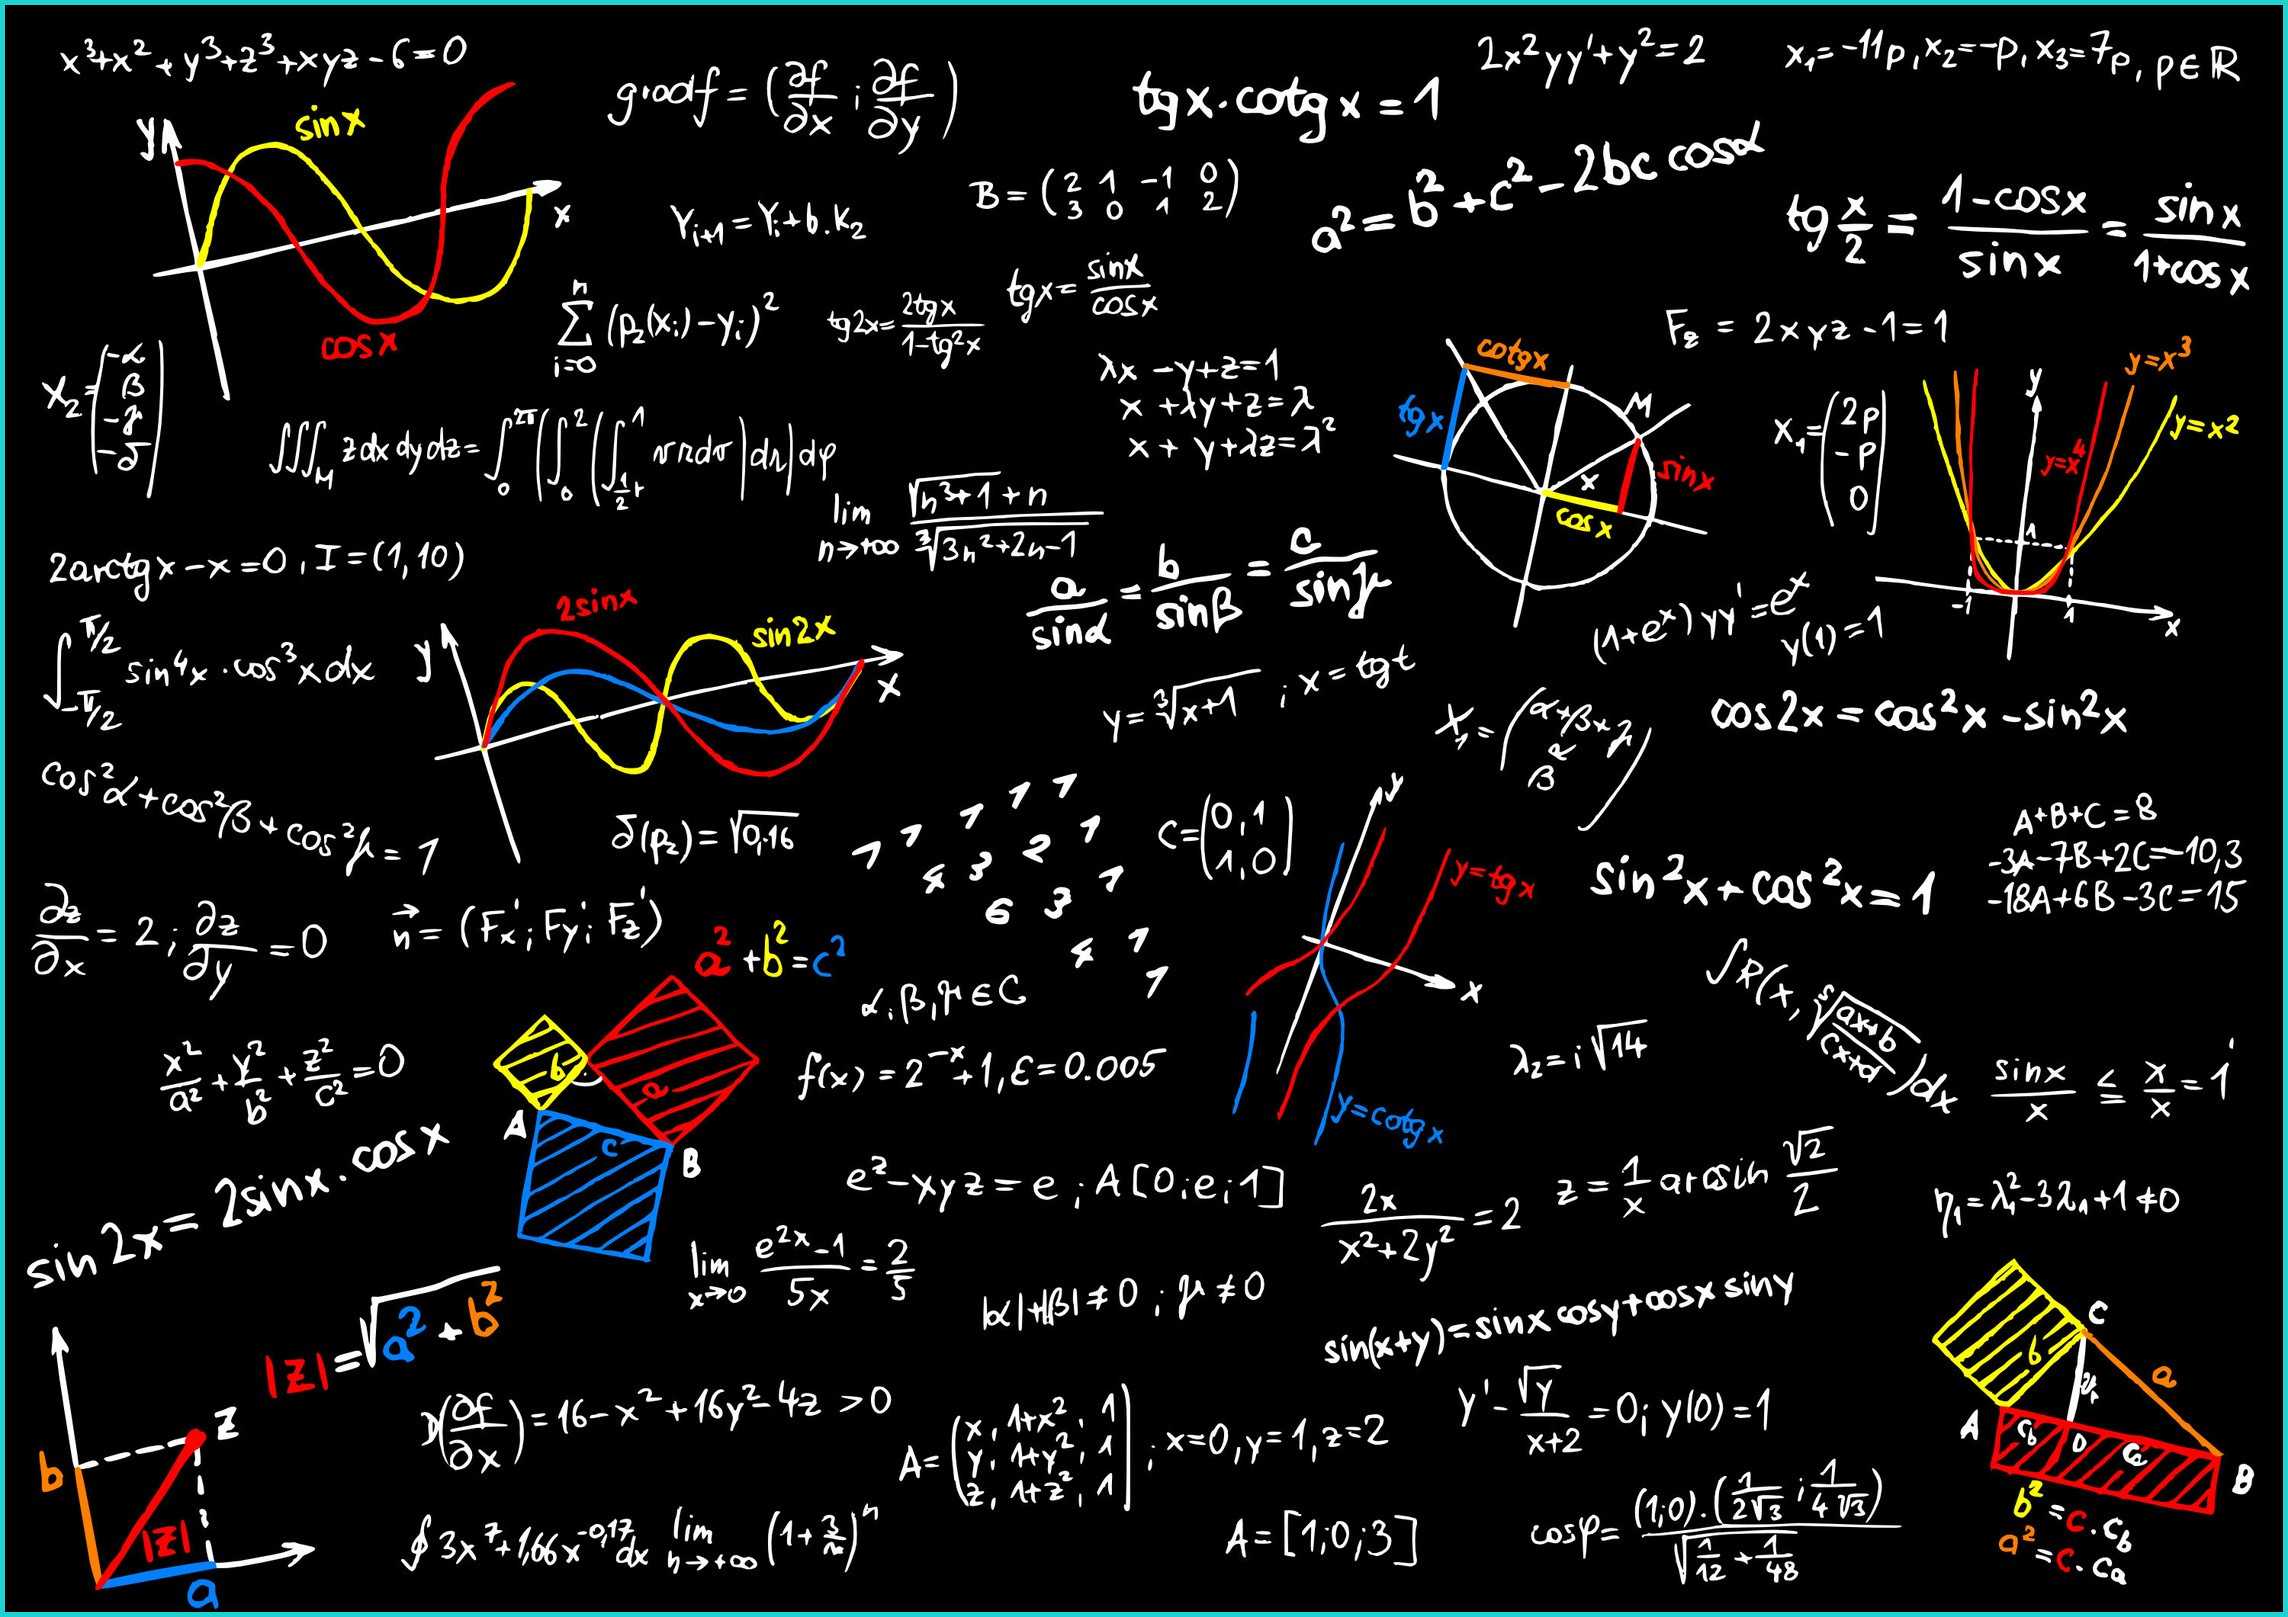 x³+x²+y³+z³+xyz-6=0
gradf = (∂f/∂x ; ∂f/∂y)
tgx·cotgx=1
2x²yy'+y²=2
x₁=-11p, x₂=-p, x₃=7p, p∈R
y
sinx
x
cosx
Yᵢ₊₁=Yᵢ+b.K₂
B=(2 1 -1 0
3 0 1 2)
a²=b²+c²-2bc cosα
tg x/2 = (1-cosx)/sinx = sinx/(1+cosx)
∑ᵢ₌₀ⁿ (p₂(xᵢ)-yᵢ)²
tg2x= 2tgx/(1-tg²x)
tgx= sinx/cosx
F_z = 2xyz-1=1
X₂=(-α
β
-γ
-δ)
λx-y+z=1
x+λy+z=λ
x+y+λz=λ²
cotgx
tgx
M
x
sinx
cosx
X₁=(2p
-p
0)
y
y=x³
y=x²
y=x⁴
1
-1
1
x
∫∫∫_M zdxdydz=
lim n→+∞ (√(n³+1)+n)/∛(3n²+2n-1)
2arctgx-x=0, I=(1,10)
∫_{-π/2}^{π/2} sin⁴x·cos³xdx
y
2sinx
sin2x
x
a/sinα = b/sinβ = c/sinγ
(1+eˣ)yy'=eˣ
y(1)=1
y=∛(x+1) ; x=tgt
X₁=(α+β+γ
α
β)
cos2x=cos²x-sin²x
cos²α+cos²β+cos²γ=1
δ(p₂)=√0,16
1 1 1 1 1
4 3 2 1
6 3 1
4 1
1
C=(0,1
1,0)
y
y=tgx
x
y=cotgx
sin²x+cos²x=1
A+B+C=8
-3A-7B+2C=-10,3
-18A+6B-3C=15
∂z/∂x=2 ; ∂z/∂y=0
n⃗=(Fx'; Fy'; Fz')
a²+b²=c²
b
a
A
c
B
α,β,γ∈C
∫R(x, ˢ√((ax+b)/(cx+d)))dx
x²/a²+y²/b²+z²/c²=0
f(x)=2⁻ˣ+1, ε=0.005
λ₂=i√14
sinx/x ≤ x/x=1
sin2x=2sinx·cosx
e^z-xyz=e ; A[0;e;1]
2x/(x²+2y²)=2
z=1/x arcsin √2/2
η₁=λ₁²-3λ₁+1≠0
lim x→0 (e²ˣ-1)/5x = 2/5
|α|+|β|≠0 ; γ≠0
sin(x+y)=sinx cosy+cosx siny
|z|=√(a²+b²)
z
b
|z|
a
D(∂f/∂x)=16-x²+16y²-4z>0
A=(x, 1+x², 1
y, 1+y², 1
z, 1+z², 1) ; x=0, y=1, z=2
y'-√y/(x+2)=0; y(0)=1
C
b
a
A
c_b
D
c_a
B
b²=c·c_b
a²=c·c_a
∮3x⁷+1,66x^{-0,17}dx
lim n→+∞ (1+3/n)ⁿ
A=[1;0;3]
cosφ= (1;0).(1/(2√3) ; 1/(4√3)) / √(1/12+1/48)